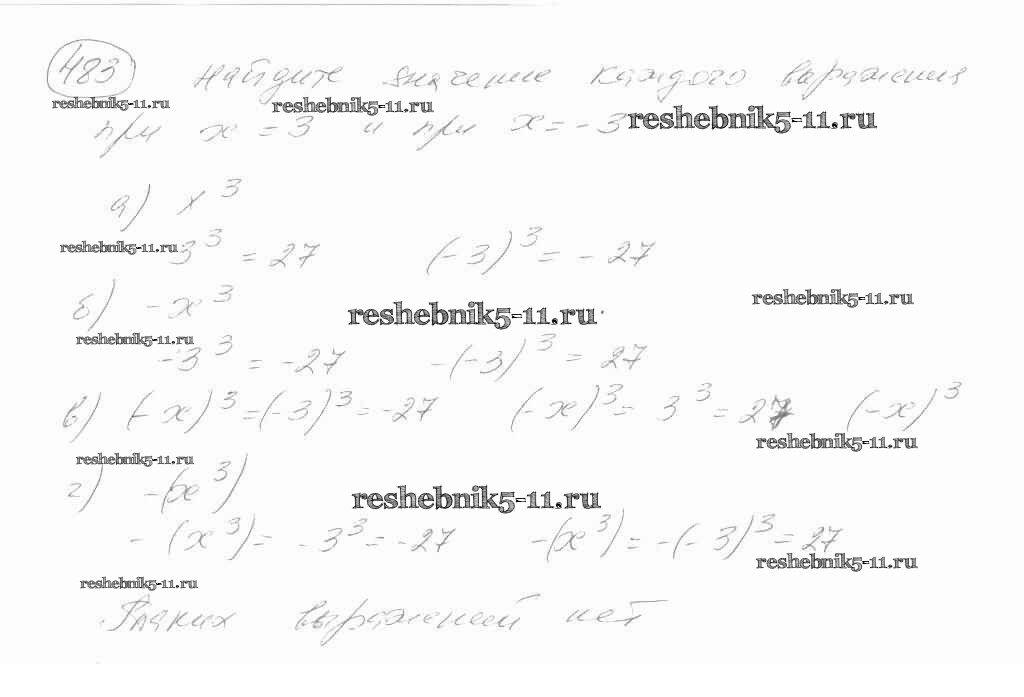 483 Найдите значение каждого выражения
reshebnik5-11.ru reshebnik5-11.ru
при x = 3 и при x = -3 reshebnik5-11.ru
а) x³
reshebnik5-11.ru 3³ = 27 (-3)³ = -27
б) -x³ reshebnik5-11.ru reshebnik5-11.ru
reshebnik5-11.ru
-3³ = -27 -(-3)³ = 27
в) (-x)³ = (-3)³ = -27 (-x)³ = 3³ = 27 (-x)³
reshebnik5-11.ru
reshebnik5-11.ru
г) -(x³) reshebnik5-11.ru
-(x³) = -3³ = -27 -(x³) = -(-3)³ = 27
reshebnik5-11.ru
reshebnik5-11.ru
выражений нет